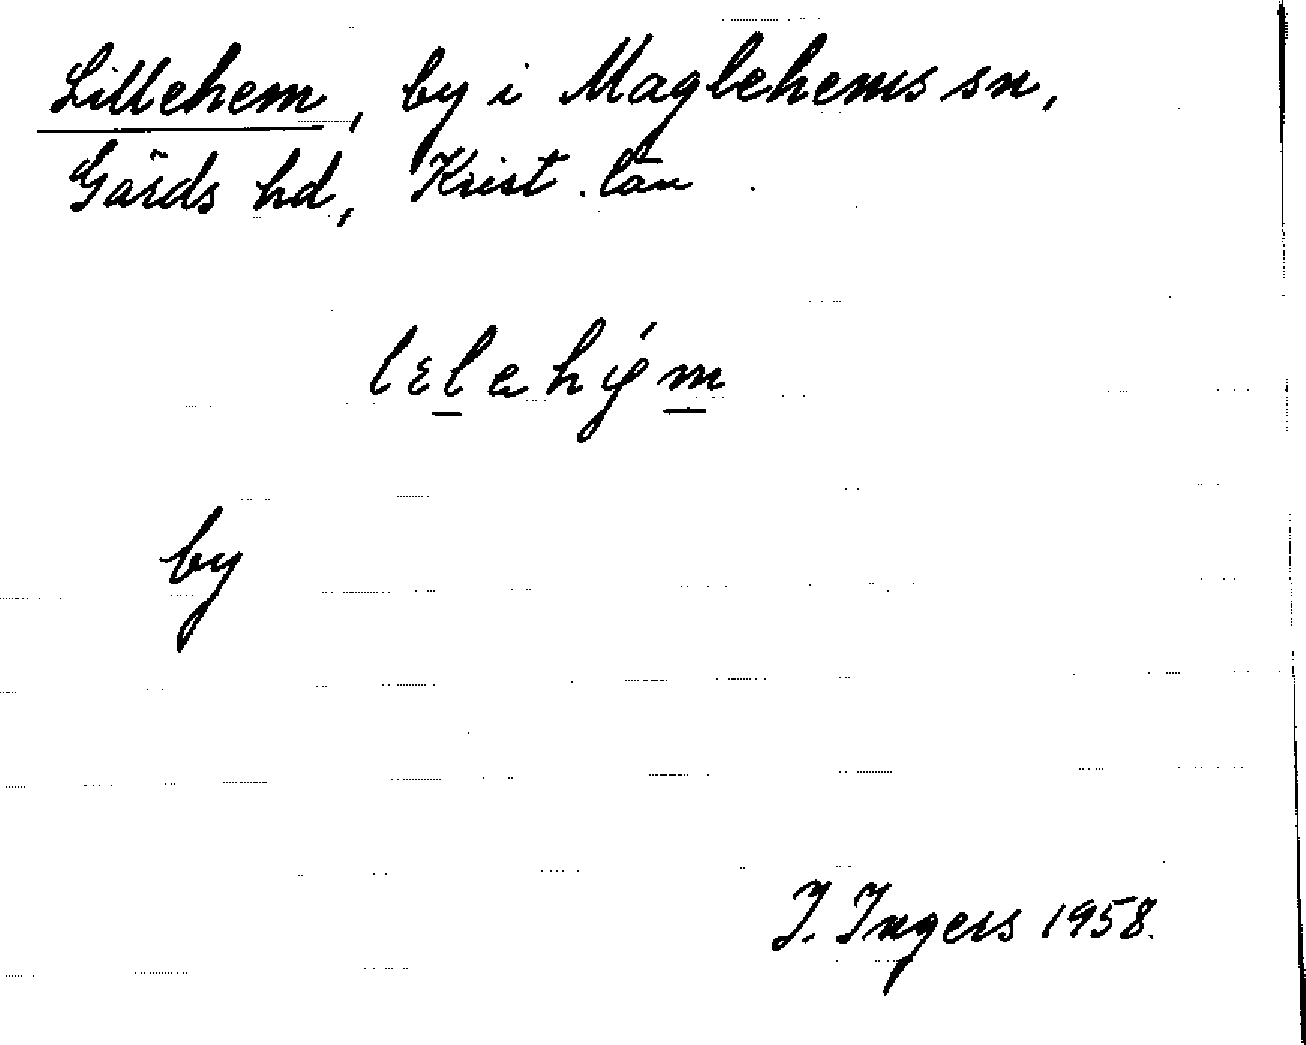 Lillehem, by i Maglehems sn,
Gärds hd, Krist. län
lɛlehým
by
I. Ingers 1958.